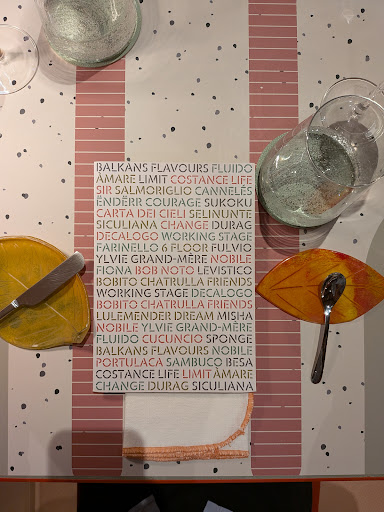 BALKANS FLAVOURS FLUIDO
ÀMARE LIMIT COSTANCE LIFE
SIR SALMORIGLIO CANNELÉS
ËNDËRR COURAGE SUKOKU
CARTA DEI CIELI SELINUNTE
SICULIANA CHANGE DURAG
DECALOGO WORKING STAGE
FARINELLO G FLOOR FULVIO
YLVIE GRAND-MÈRE NOBILE
FIONA BOB NOTO LEVISTICO
BOBITO CHATRULLA FRIENDS
WORKING STAGE DECALOGO
BOBITO CHATRULLA FRIENDS
LULEMENDER DREAM MISHA
NOBILE YLVIE GRAND-MÈRE
FLUIDO CUCUNCIO SPONGE
BALKANS FLAVOURS NOBILE
PORTULACA SAMBUCO BESA
COSTANCE LIFE LIMIT ÀMARE
CHANGE DURAG SICULIANA